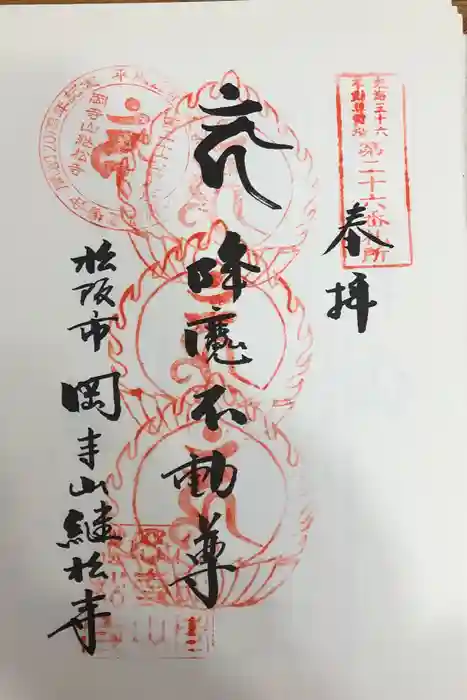 東海三十六
不動尊霊場
第二十六番札所
奉拝
降魔不動尊
松阪市 岡寺山継松寺
岡寺山継松寺